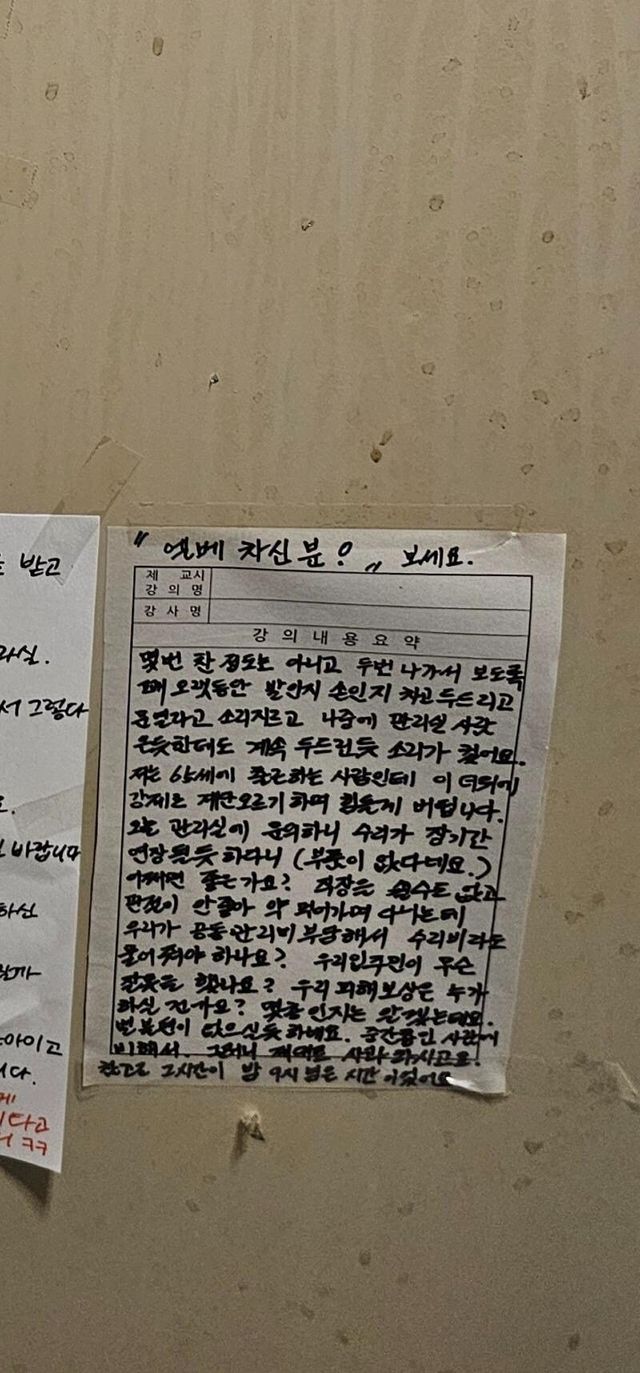 받고
서 그렇다
바랍니다
하신
아이고
니다.
타고
ㅋㅋ
" 엘베 차신 분! " 보세요.
제 교시
강 의 명
강 사 명
강 의 내 용 요 약
몇번 찬 정도는 아니고 두번 나가서 보도록
오랫동안 발인지 손인지 차고 두드리고
문열라고 소리지르고 나중에 관리실 사람
온듯한데도 계속 두드린듯 소리가 컸어요.
저는 65세에 출근하는 사람인데 이 더위에
강제로 계단오르기하며 힘들게 버팁니다.
오늘 관리실에 문의하니 수리가 장기간
연장될듯 하다니 (부품이 없다네요.)
어쩌면 좋은가요? 직장을 쉴수도 없고
관절이 안좋아 약 먹어가며 다니는데
우리가 공동관리비 부담해서 수리비라도
물어줘야 하나요? 우리 입주민이 무슨
잘못을 했나요? 우리 피해보상은 누가
하실 건가요? 몇층인지는 알겠는데요.
층간소음인 사람에
비해서. 그러니 제대로 사과하시고요.
참고로 그시간이 밤 9시 넘은 시간이었어요